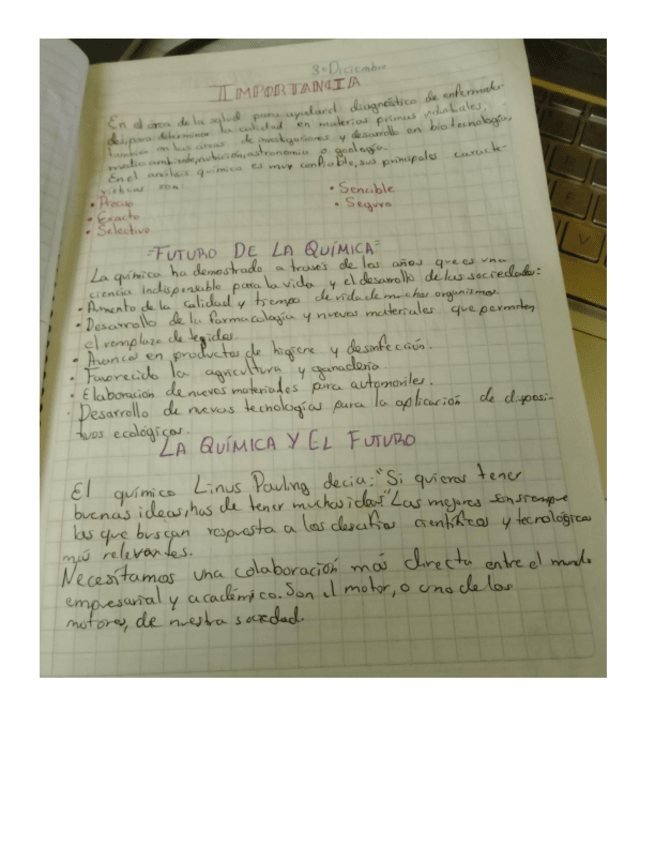 3-Diciembre
IMPORTANCIA
En el área de la salud para ayudar el diagnóstico de enfermeda-
des, para determinar la calidad en materias primas minerales,
también en las áreas de investigaciones y desarrollo en biotecnología,
medio ambiente, nutrición, astronomía o geología.
En el análisis químico es muy confiable, sus principales caracte-
rísticas son:
• Preciso
• Sencible
• Exacto
• Seguro
• Selectivo
"FUTURO DE LA QUÍMICA"
La química ha demostrado a través de los años que es una
ciencia indispensable para la vida y el desarrollo de las sociedades:
• Aumento de la calidad y tiempo de vida de muchos organismos
• Desarrollo de la farmacología y nuevos materiales que permiten
el remplazo de tegidos.
• Avances en productos de higiene y desinfección.
• Favorecido la agricultura y ganadería
• Elaboración de nuevos materiales para automoviles.
• Desarrollo de nuevas tecnologías para la aplicación de disposi-
tivos ecológicos.
LA QUÍMICA Y EL FUTURO
El químico Linus Pauling decia: "Si quieras tener
buenas ideas, has de tener muchas ideas" Las mejores son siempre
las que buscan respuesta a los desafios científicos y tecnológicos
más relevantes.
Necesitamos una colaboración más directa entre el mundo
empresarial y académico. Son el motor, o uno de los
motores, de nuestra sociedad.